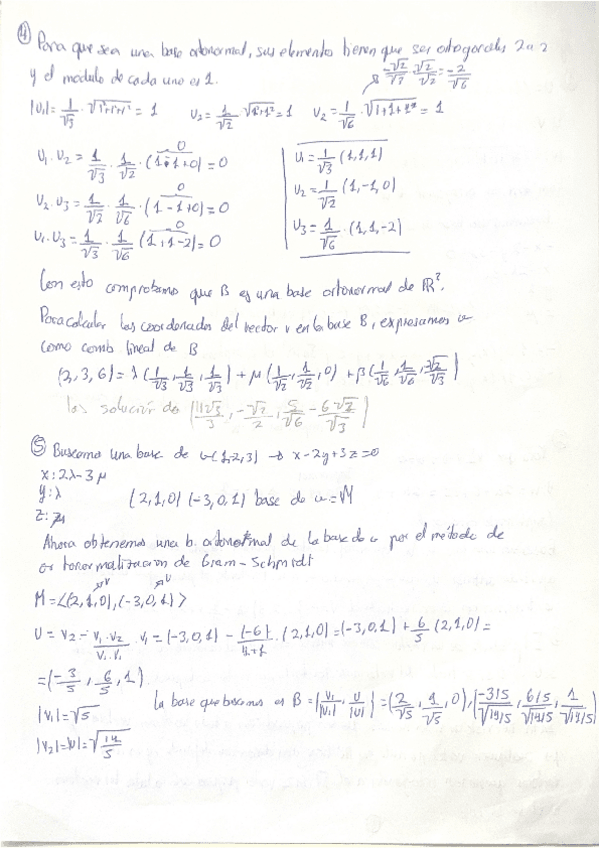 ④ Para que sea una base ortonormal, sus elemento tienen que ser ortogonales 2 a 2
y el modulo de cada uno es 1.
-√2/√2 · √2/√2 = -2/√6
|v₁| = 1/√3 · √1²+1²+1² = 1    v₂ = 1/√2 · √1²+1² = 1    v₂ = 1/√6 · √1+1+2² = 1
v₁ · v₂ = 1/√3 · 1/√2 · (1-1+0) = 0
v₂ · v₃ = 1/√2 · 1/√6 · (1-1+0) = 0
v₁ · v₃ = 1/√3 · 1/√6 (1+1-2) = 0
v₁ = 1/√3 (1,1,1)
v₂ = 1/√2 (1,-1,0)
v₃ = 1/√6 · (1,1,-2)
Con esto comprobamos que B es una base ortonormal de ℝ³.
Para calcular las coordenadas del vector v en la base B, expresamos v
como comb lineal de B
(2,3,6) = λ(1/√3, 1/√3, 1/√3) + μ(1/√2, 1/√2, 0) + β(1/√6, 1/√6, √2/√3)
las solución do (11√3/3, -√2/2, 5/√6 - 6√2/√3)
⑤ Buscamos una base de v(1,2,3) → x-2y+3z=0
x: 2λ-3μ
y: λ    (2,1,0) (-3,0,1) base de u = M
z: μ
Ahora obtenemos una b. ortonormal de la base de u por el método de
ortonormalización de Gram-Schmidt
M = <(2,1,0), (-3,0,1)>
U = v₂ - v₁·v₂/v₁·v₁ · v₁ = (-3,0,1) - (-6)/4+1 · (2,1,0) = (-3,0,1) + 6/5 (2,1,0) =
= (-3/5, 6/5, 1)
la base que buscamos es B = (v₁/|v₁|, U/|U|) = (2/√5, 1/√5, 0), (-3/5/√14/5, 6/5/√14/5, 1/√14/5)
|v₁| = √5
|v₂| = |U| = √14/5